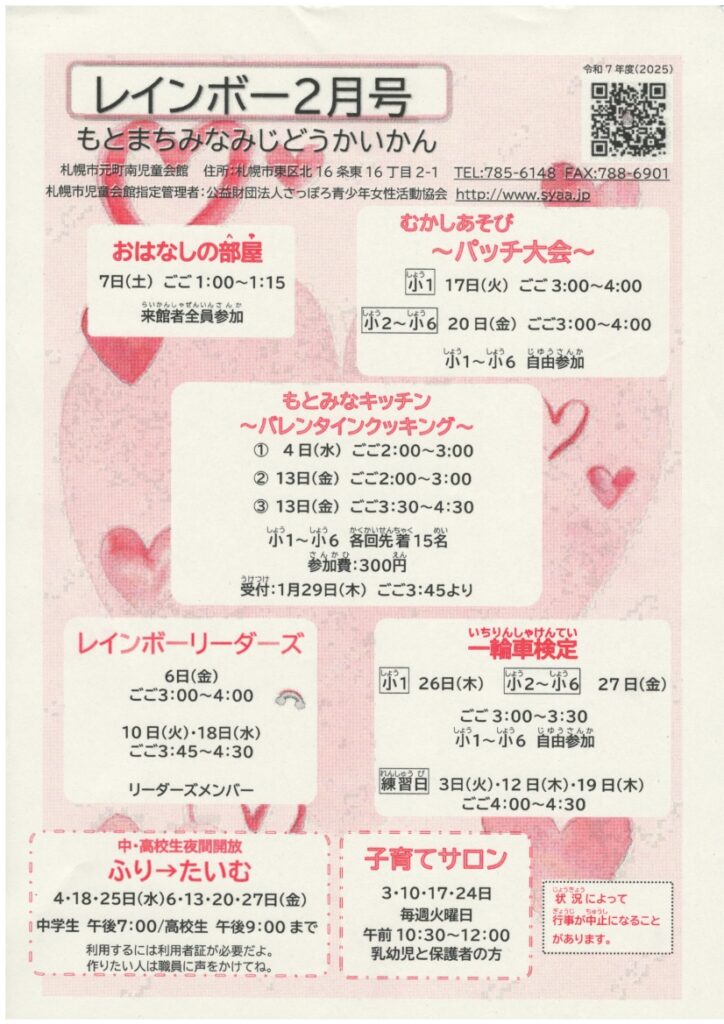 令和7年度(2025)
レインボー2月号
もとまちみなみじどうかいかん
札幌市元町南児童会館 住所:札幌市東区北16条東16丁目2-1 TEL:785-6148 FAX:788-6901
札幌市児童会館指定管理者:公益財団法人さっぽろ青少年女性活動協会 http://www.syaa.jp
へや
おはなしの部屋
7日(土) ごご1:00~1:15
らいかんしゃぜんいんさんか
来館者全員参加
むかしあそび
~パッチ大会~
しょう
小1 17日(火) ごご3:00~4:00
しょう しょう
小2~小6 20日(金) ごご3:00~4:00
しょう しょう じゆうさんか
小1~小6 自由参加
もとみなキッチン
~バレンタインクッキング~
① 4日(水) ごご2:00~3:00
② 13日(金) ごご2:00~3:00
③ 13日(金) ごご3:30~4:30
しょう しょう かくかいせんちゃく めい
小1~小6 各回先着15名
さんかひ えん
参加費:300円
うけつけ
受付:1月29日(木) ごご3:45より
レインボーリーダーズ
6日(金)
ごご3:00~4:00
10日(火)・18日(水)
ごご3:45~4:30
リーダーズメンバー
いちりんしゃけんてい
一輪車検定
しょう しょう しょう
小1 26日(木) 小2~小6 27日(金)
ごご3:00~3:30
しょう しょう じゆうさんか
小1~小6 自由参加
れんしゅうび
練習日 3日(火)・12日(木)・19日(木)
ごご4:00~4:30
中・高校生夜間開放
ふり→たいむ
4・18・25日(水)6・13・20・27日(金)
中学生 午後7:00/高校生 午後9:00まで
利用するには利用者証が必要だよ。
作りたい人は職員に声をかけてね。
子育てサロン
3・10・17・24日
毎週火曜日
午前10:30~12:00
乳幼児と保護者の方
じょうきょう
状況によって
ぎょうじ ちゅうし
行事が中止になること
があります。